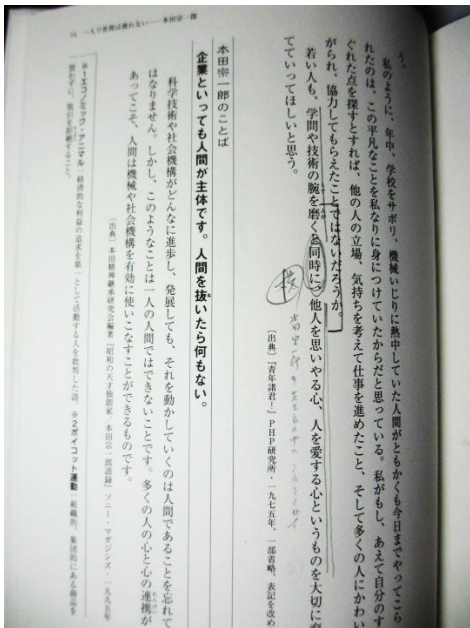 14 一人で世間は渡れない——本田宗一郎
う。
私のように、年中、学校をサボり、機械いじりに熱中していた人間がともかくも今日までやってこら
れたのは、この平凡なことを私なりに身につけていたからだと思っている。私がもし、あえて自分のす
ぐれた点を探すとすれば、他の人の立場、気持ちを考えて仕事を進めたこと、そして多くの人にかわい
がられ、協力してもらえたことではないだろうか。
若い人も、学問や技術の腕を磨くと同時に、他人を思いやる心、人を愛する心というものを大切に育
てていってほしいと思う。
〔出典〕『青年諸君!』PHP研究所・一九七五年、一部省略、表記を改め
本田宗一郎のことば
企業といっても人間が主体です。人間を抜いたら何もない。
科学技術や社会機構がどんなに進歩し、発展しても、それを動かしていくのは人間であることを忘れて
はなりません。しかし、このようなことは一人の人間ではできないことです。多くの人の心と心の連携が
あってこそ、人間は機械や社会機構を有効に使いこなすことができるものです。
〔出典〕本田精神継承研究会編著『昭和の天才独創家/本田宗一郎語録』ソニー・マガジンズ・一九九五年
※1エコノミック・アニマル:経済的な利益の追求を第一として活動する人を批判した語。 ※2ボイコット運動:組織的、集団的にある商品を
買わずに、取引を拒絶すること。